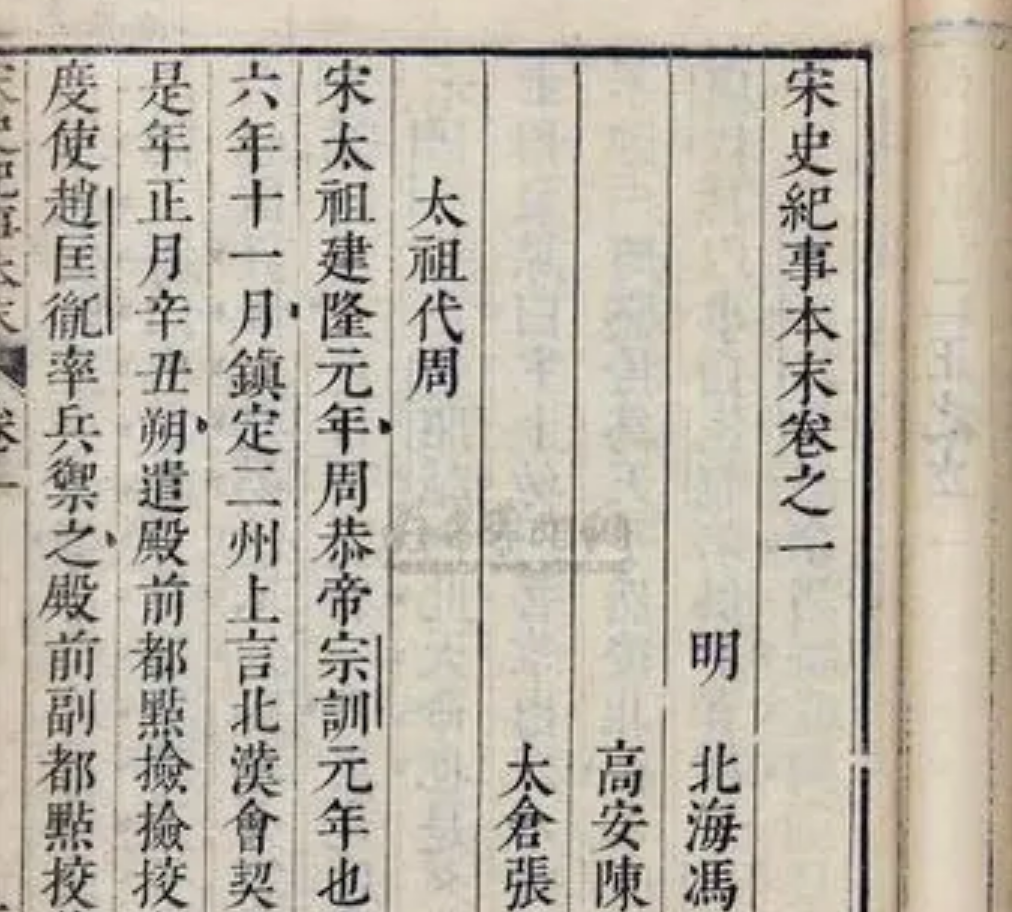 宋史紀事本末卷之一
明　北海馮
高安陳
太倉張
太祖代周
宋太祖建隆元年周恭帝宗訓元年也
六年十一月鎮定二州上言北漢會契
是年正月辛丑朔遣殿前都點撿撿挍
度使趙匡胤率兵禦之殿前副都點挍
宋史紀事本末　卷一